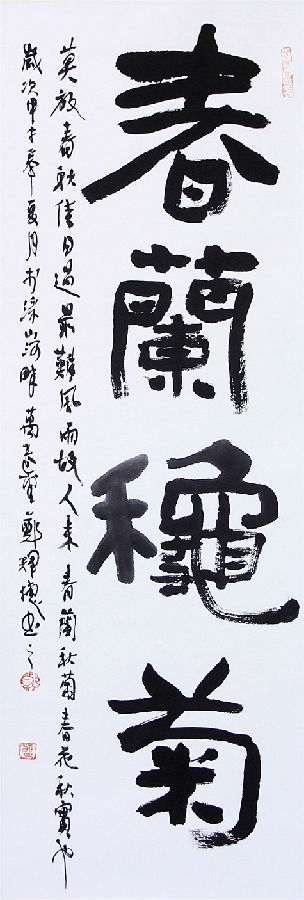 春蘭龝菊
莫放春秋佳日過最難風雨故人來春蘭秋菊春花秋實也
歲次甲午季夏月於深河畔萬 鄭輝書之